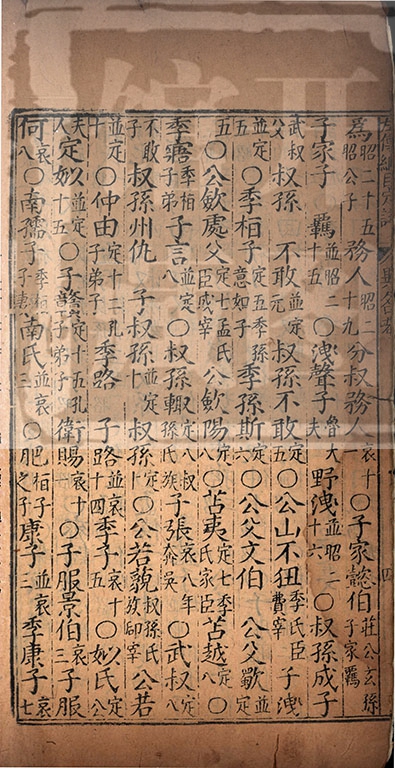 為昭二十五昭公子務人昭二十九公叔務人哀十一○子家懿伯莊公玄孫子家羈
子家子羈並昭二十五○洩聲子魯大夫野洩並昭二十六○叔孫成子
武叔父叔孫不敢定元叔孫不敢定五○公山不狃季氏臣費宰子洩
並定五○季桓子定五季孫意如子季孫斯定六○公父文伯公父歜並定
五○公斂處父定七孟氏臣成宰公斂陽定八○苫夷定七季氏家臣苫越定八○
季寤季桓弟子言並定八○叔孫輒定八叔孫氏族子張哀八年奔吳○武叔定八
不敢子叔孫州仇子叔孫並定十○公若藐定十叔孫氏郈宰公若
並定十○仲由定十二孔子弟子季路子路並哀十四季子哀十五○姒氏定公
夫人定姒十五○子貢定十五孔子弟子衛賜哀十一○子服景伯哀三子服
何哀八○南孺子季桓子妻南氏並哀三○肥桓子之子康子並哀三季康子哀七